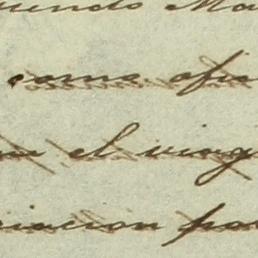 uendo Ma
como ofi
el viag
iacion pa